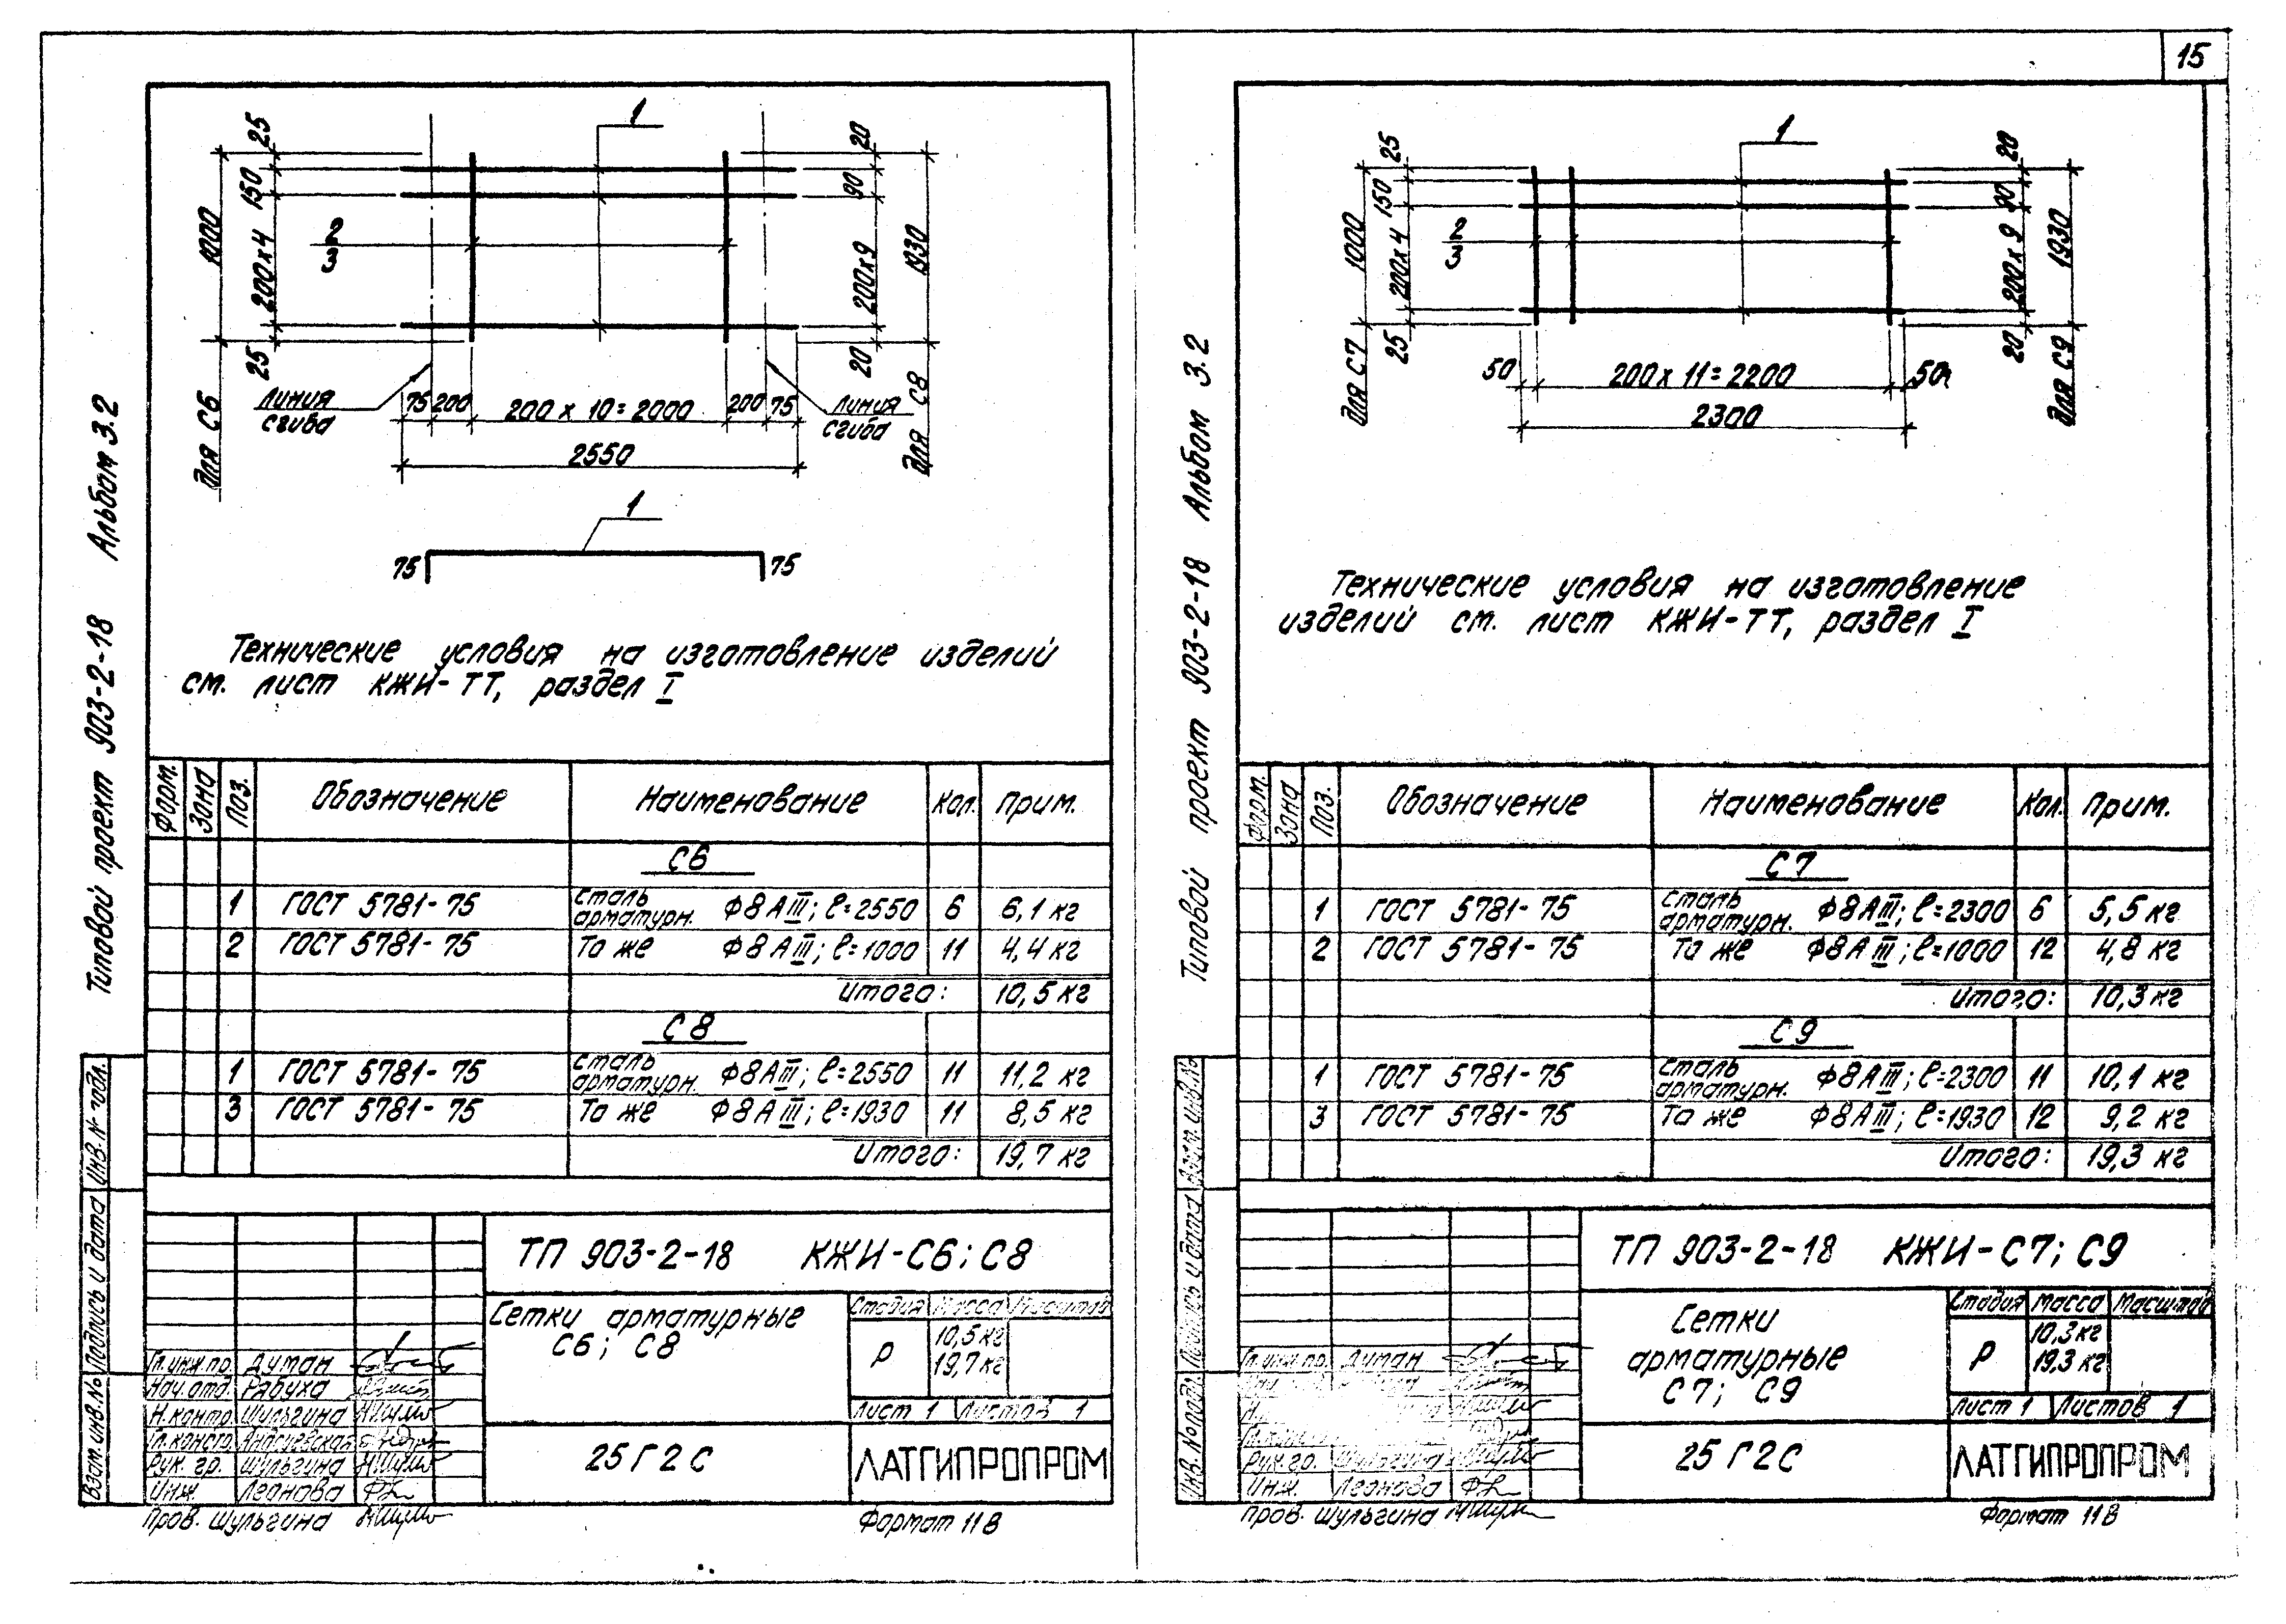 15
Типовой проект 903-2-18 Альбом 3.2
1
25
150
200х4
25
1000
для С6
2
3
20
90
200х9
20
1930
для С8
линия
сгиба
75 200 200 х 10=2000 200 75
линия
сгиба
2550
1
75
75
Технические условия на изготовление изделий
см. лист КЖИ-ТТ, раздел I
Форм. Зона Поз. Обозначение Наименование Кол. Прим.
С6
1 ГОСТ 5781-75 сталь арматурн. Ф8АIII; ℓ=2550 6 6,1 кг
2 ГОСТ 5781-75 То же Ф8АIII; ℓ=1000 11 4,4 кг
Итого: 10,5 кг
С8
1 ГОСТ 5781-75 сталь арматурн. Ф8АIII; ℓ=2550 11 11,2 кг
3 ГОСТ 5781-75 То же Ф8АIII; ℓ=1930 11 8,5 кг
Итого: 19,7 кг
ТП 903-2-18 КЖИ-С6; С8
Сетки арматурные
С6; С8
Стадия Масса Масштаб
Р
10,5 кг
19,7 кг
Лист 1 Листов 1
25Г2С
ЛАТГИПРОПРОМ
Гл.инж.пр. Думан
Нач.отд. Рябуха
Н.контр. Шульгина
Гл.констр.
Рук. гр. Шульгина
Инж. Леонова
Пров. Шульгина
Формат 11В
Инв.№ подл.
Подпись и дата
Взам.инв.№
Типовой проект 903-2-18 Альбом 3.2
1
25
150
200х4
25
1000
для С7
2
3
20
90
200х9
20
1930
для С9
50 200х11=2200 50
2300
Технические условия на изготовление
изделий см. лист КЖИ-ТТ, раздел I
Форм. Зона Поз. Обозначение Наименование Кол. Прим.
С7
1 ГОСТ 5781-75 сталь арматурн. Ф8АIII; ℓ=2300 6 5,5 кг
2 ГОСТ 5781-75 То же Ф8АIII; ℓ=1000 12 4,8 кг
Итого: 10,3 кг
С9
1 ГОСТ 5781-75 сталь арматурн. Ф8АIII; ℓ=2300 11 10,1 кг
3 ГОСТ 5781-75 То же Ф8АIII; ℓ=1930 12 9,2 кг
Итого: 19,3 кг
ТП 903-2-18 КЖИ-С7; С9
Сетки
арматурные
С7; С9
Стадия Масса Масштаб
Р
10,3 кг
19,3 кг
Лист 1 Листов 1
25Г2С
ЛАТГИПРОПРОМ
Гл.инж.пр. Думан
Рук.гр. Шульгина
Инж. Леонова
Пров. Шульгина
Формат 11В
Взам.инв.№
Подпись и дата
Инв.№ подл.